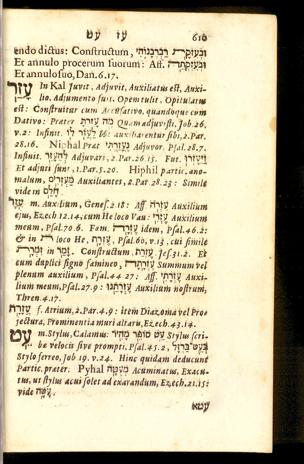 עז עט 610
endo dictus: Constructum,
Et annulo procerum suorum: Aff.
Et annulo suo, Dan. 6.17.
עזר In Kal Juvit, Adjuvit, Auxiliatus est, Auxi-
lio, Adjumento fuit, Opem tulit, Opitulatus
est: Construitur cum Accusativo, quandoque cum
Dativo: Præter Quam adjuvisti, Job. 26,
v. 2: Infinit. auxiliarentur sibi, 2. Par.
28.16. Niphal Præt. Adjuvor. Psal. 28.7.
Infinit. Adjuvari, 2. Par. 26.15. Fut.
Et adjuti sunt, 1. Par. 5.20. Hiphil partic. ano-
malum, Auxiliantes, 2. Par. 28.23: Simile
vide in
m. Auxilium, Genes. 2.18: Aff. Auxilium
ejus, Ezech. 12.14, cum He loco Vau: Auxilium
meum, Psal. 70.6. Fæm. idem, Psal. 46.2:
& in loco He, Psal. 60, v. 13. cui simile
in Construct. Jes. 31.2. Et
cum duplici signo fæmineo, Summum vel
plenum auxilium, Psal. 44.27: Aff. Auxilium
meum, Psal. 27.9: Auxilium nostrum,
Thren. 4.17.
f. Atrium, 2. Par. 4.9: item Diazoma vel Pro-
jectura, Prominentia muri altaris, Ezech. 43.14.
עט m. Stylus, Calamus: עט סופר מהיר Stylus scri-
bæ velocis sive prompti, Psal. 45.2, בעט ברזל
Stylo ferreo, Job 19. v. 24. Hinc quidam deducunt
Partic. præter. Pyhal Acuminatus, Exacu-
tus, ut stylus acui solet ad exarandum, Ezech. 21.15:
vide
עטא